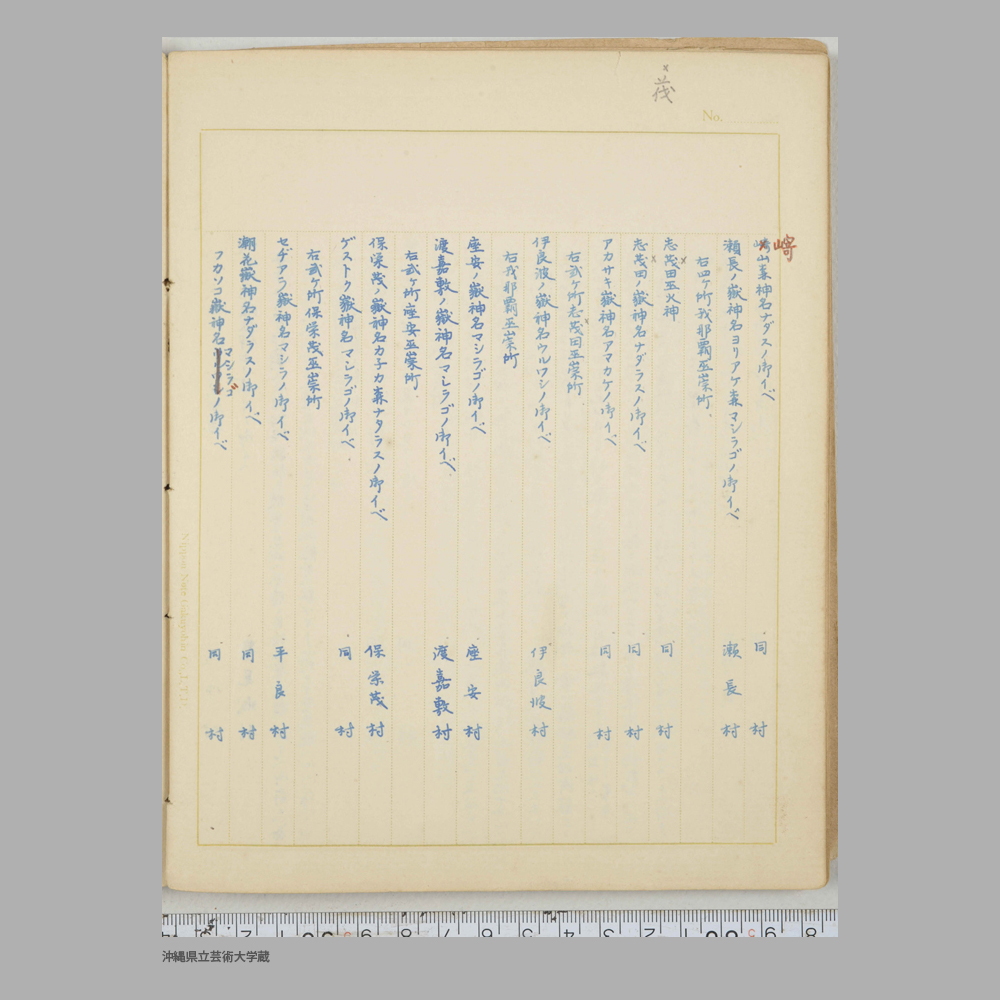 茂
No.
崎
崎山嶽神名ナダスノ御イベ 同村
瀬長ノ嶽神名ヨリアゲ森マシラゴノ御イベ 瀬長村
右四ヶ所我那覇巫崇所
志茂田巫火神 同村
志茂田ノ嶽神名ナダラスノ御イベ 同村
アカサキ嶽神名アマカケノ御イベ 同村
右弐ヶ所志茂田巫崇所
伊良波ノ嶽神名ウルワシノ御イベ 伊良波村
右我那覇巫崇所
座安ノ嶽神名マシラゴノ御イベ 座安村
渡嘉敷ノ嶽神名マシラゴノ御イベ 渡嘉敷村
右弐ヶ所座安巫崇所
保栄茂ノ嶽神名カ子カ森ナタラスノ御イベ 保栄茂村
ゲストク嶽神名マシラゴノ御イベ 同村
右弐ヶ所保栄茂巫崇所
セヂアラ嶽神名マシラノ御イベ 平良村
潮花嶽神名ナダラスノ御イベ 同村
フカソコ嶽神名マシラゴノ御イベ 同村
沖縄県立芸術大学蔵